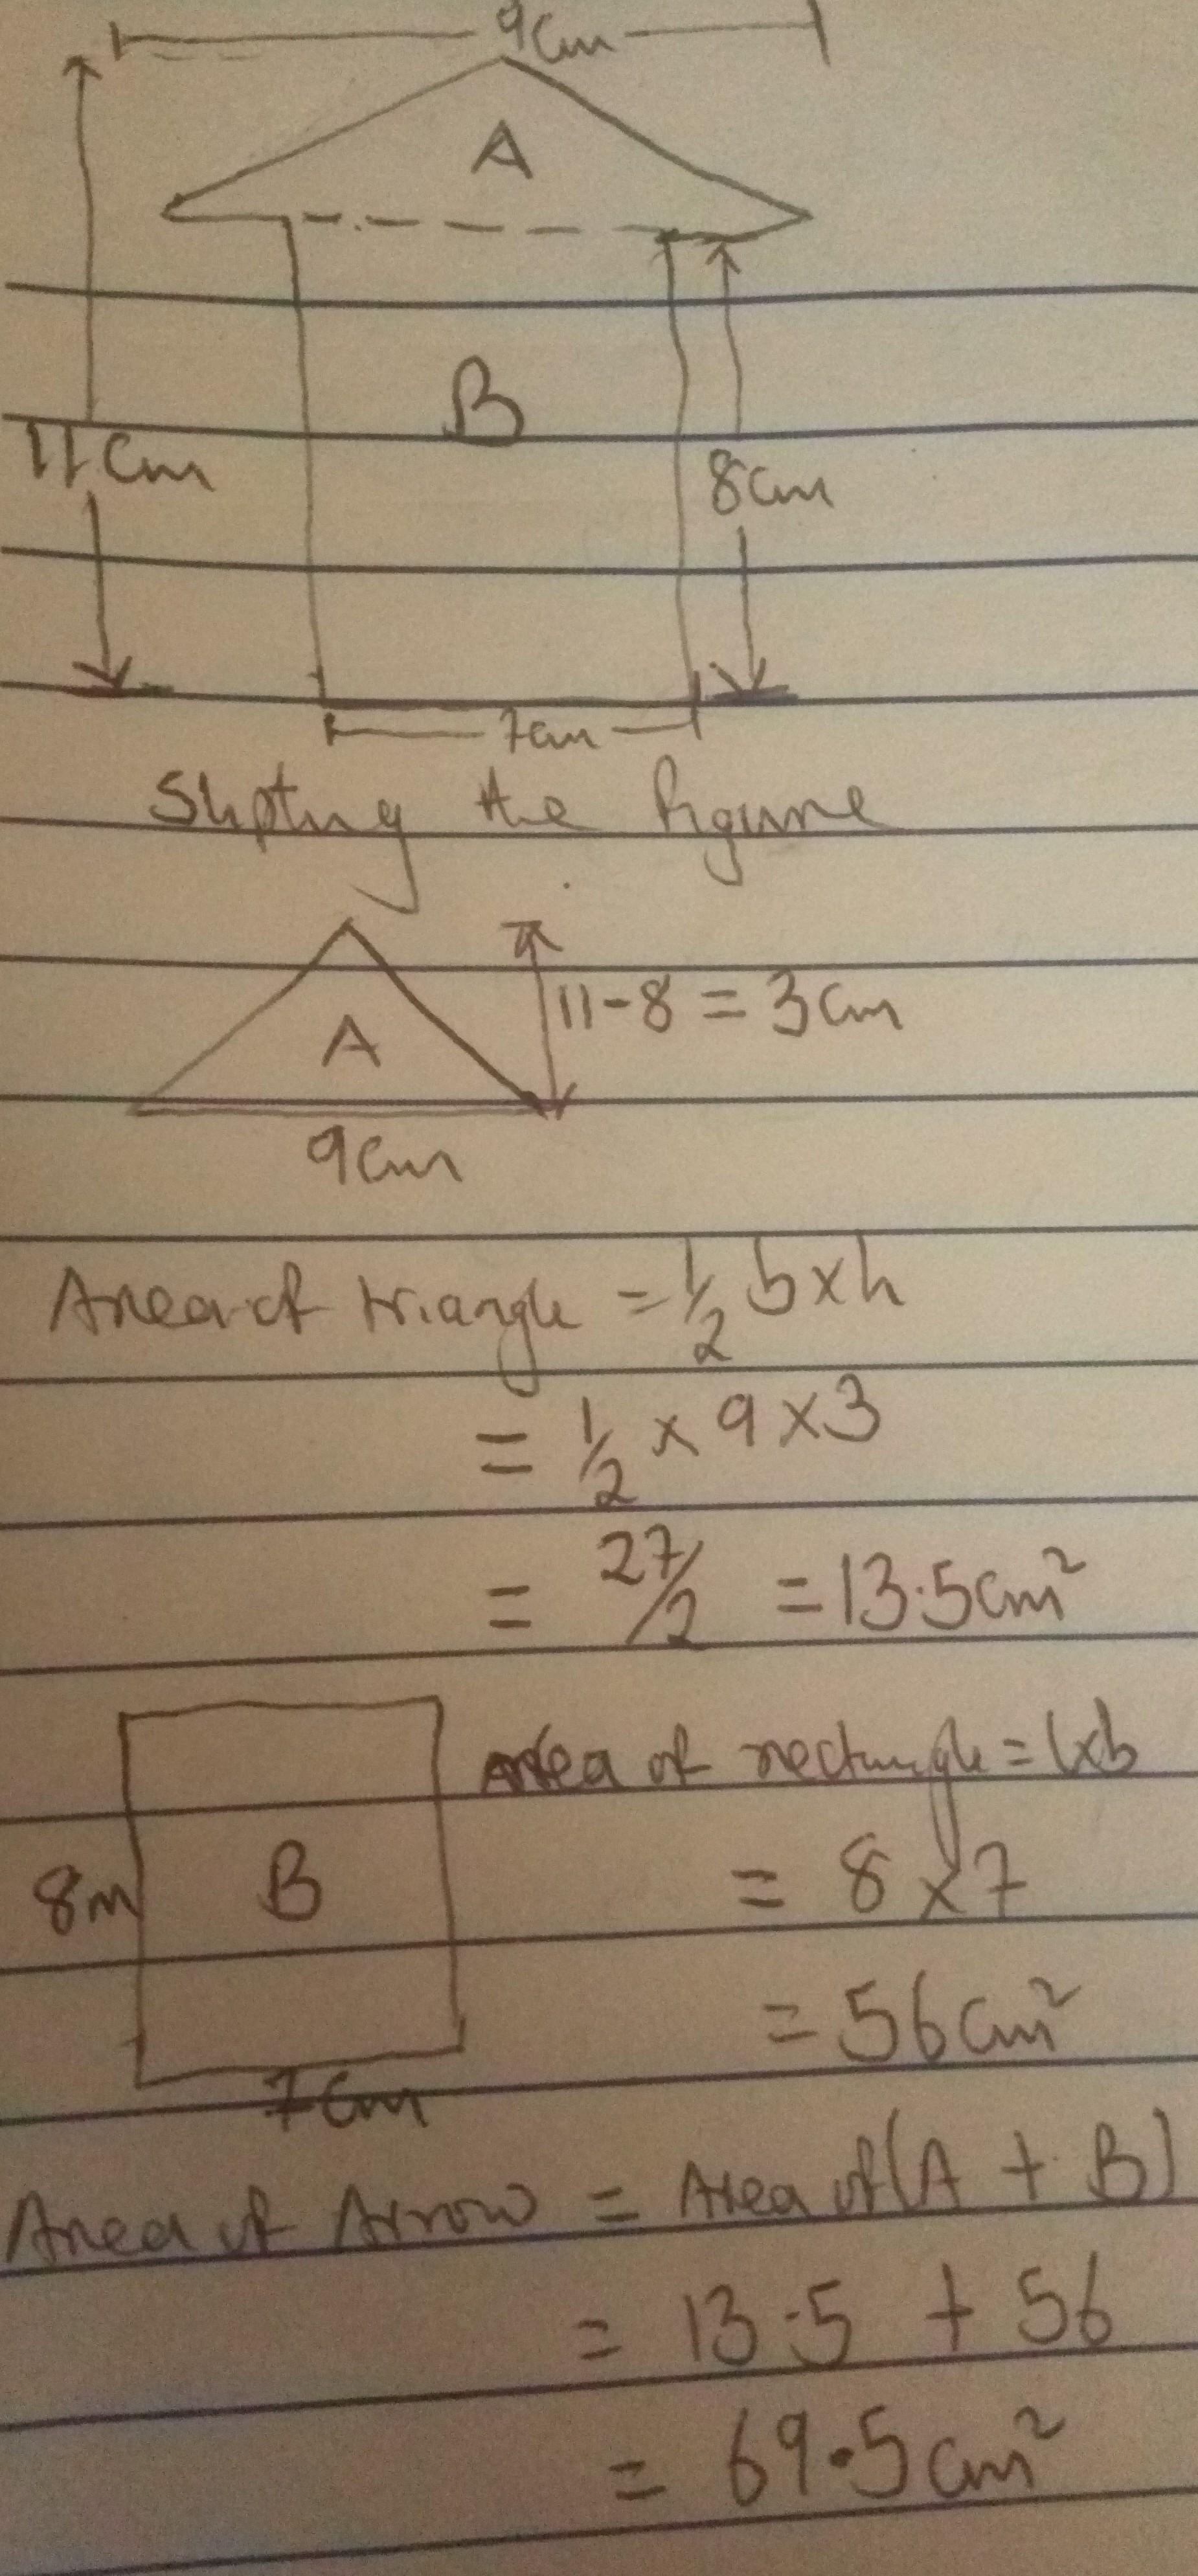 9cm
A
B
11cm
8cm
7cm
Slipting the figure
11-8 = 3cm
A
9cm
Area of triangle = 1/2 b×h
= 1/2 × 9 × 3
= 27/2 = 13.5cm²
Area of rectangle = l×b
8m
B
= 8 × 7
= 56cm²
7cm
Area of Arrow = Area of (A + B)
= 13.5 + 56
= 69.5cm²